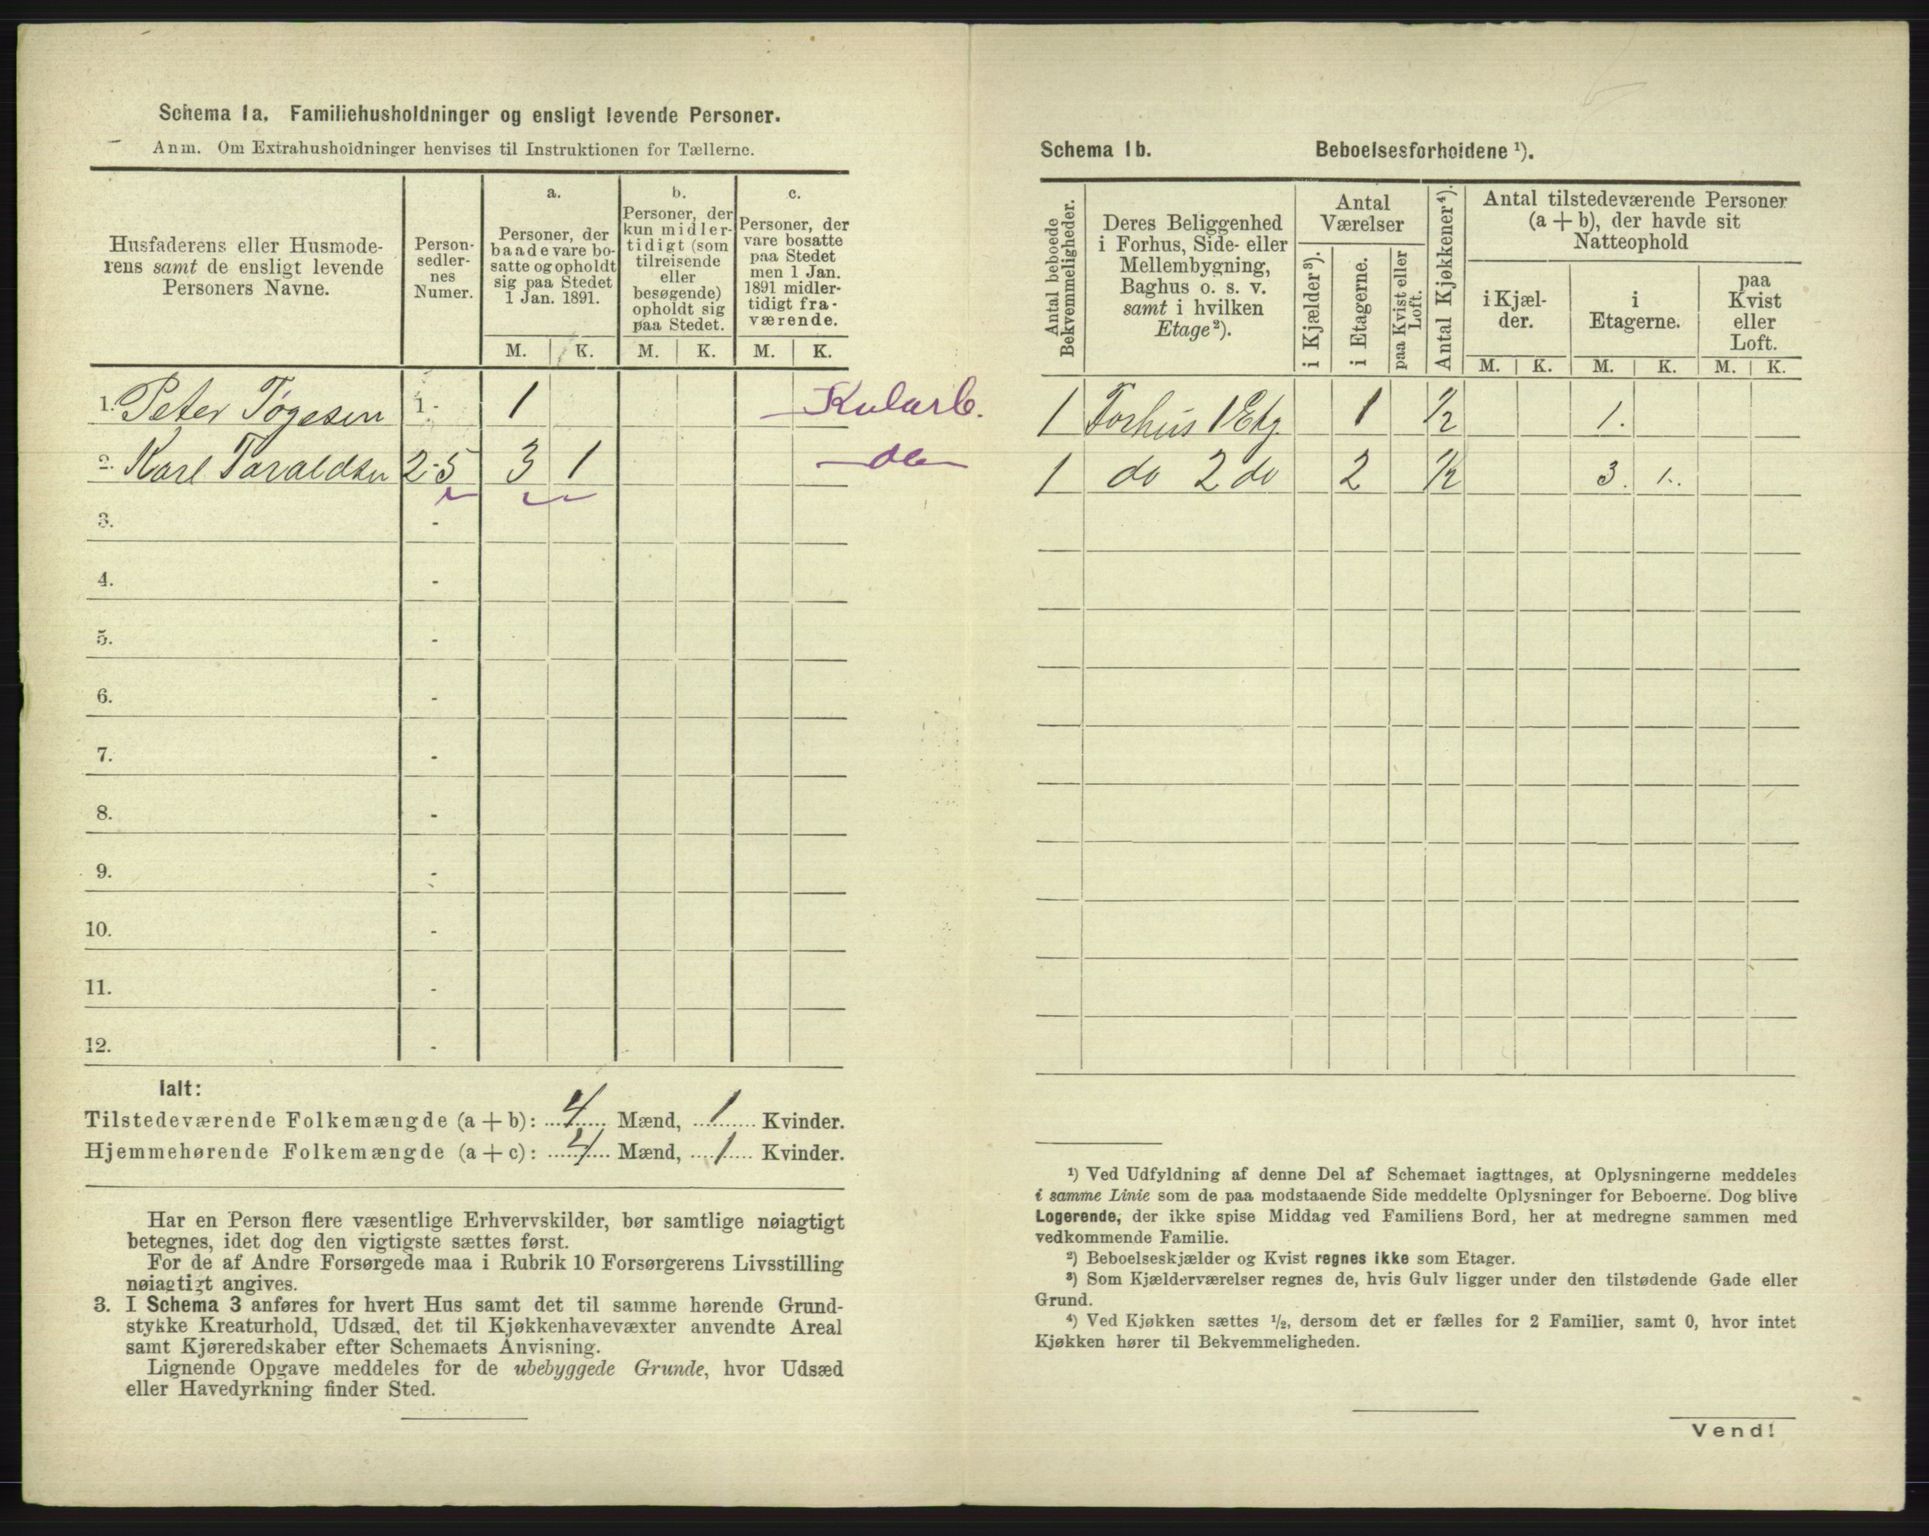 Schema 1a. Familiehusholdninger og ensligt levende Personer.
Anm. Om Extrahusholdninger henvises til Instruktionen for Tællerne.
Husfaderens eller Husmode-
rens samt de ensligt levende
Personers Navne.
Person-
sedler-
nes
Numer.
a.
Personer, der
baade vare bo-
satte og opholdt
sig paa Stedet
1 Jan. 1891.
b.
Personer, der
kun midler-
tidigt (som
tilreisende
eller
besøgende)
opholdt sig
paa Stedet.
c.
Personer, der
vare bosatte
paa Stedet
men 1 Jan.
1891 midler-
tidigt fra-
værende.
M. K. M. K. M. K.
1. Peter Tøgesen 1 - 1 Kularb.
2. Karl Taraldsen 2-5 3 1 do
3. -
4. -
5. -
6. -
7. -
8. -
9. -
10. -
11. -
12. -
Ialt:
Tilstedeværende Folkemængde (a + b): 4 Mænd, 1 Kvinder.
Hjemmehørende Folkemængde (a + c): 4 Mænd, 1 Kvinder.
Har en Person flere væsentlige Erhvervskilder, bør samtlige nøiagtigt
betegnes, idet dog den vigtigste sættes først.
For de af Andre Forsørgede maa i Rubrik 10 Forsørgerens Livsstilling
nøiagtigt angives.
3. I Schema 3 anføres for hvert Hus samt det til samme hørende Grund-
stykke Kreaturhold, Udsæd, det til Kjøkkenhavevæxter anvendte Areal
samt Kjøreredskaber efter Schemaets Anvisning.
Lignende Opgave meddeles for de ubebyggede Grunde, hvor Udsæd
eller Havedyrkning finder Sted.
Schema 1b. Beboelsesforholdene ¹).
Antal beboede
Bekvemmeligheder.
Deres Beliggenhed
i Forhus, Side- eller
Mellembygning,
Baghus o. s. v.
samt i hvilken
Etage ²).
Antal
Værelser
i Kjælder ³).
i Etagerne.
paa Kvist eller
Loft.
Antal Kjøkkener ⁴).
Antal tilstedeværende Personer
(a + b), der havde sit
Natteophold
i Kjæl-
der.
i
Etagerne.
paa
Kvist
eller
Loft.
M. K. M. K. M. K.
1 Forhus 1 Etg. 1 ½ 1.
1 do 2 do 2 ½ 3. 1.
¹) Ved Udfyldning af denne Del af Schemaet iagttages, at Oplysningerne meddeles
i samme Linie som de paa modstaaende Side meddelte Oplysninger for Beboerne. Dog blive
Logerende, der ikke spise Middag ved Familiens Bord, her at medregne sammen med
vedkommende Familie.
²) Beboelseskjælder og Kvist regnes ikke som Etager.
³) Som Kjælderværelser regnes de, hvis Gulv ligger under den tilstødende Gade eller
Grund.
⁴) Ved Kjøkken sættes ½, dersom det er fælles for 2 Familier, samt 0, hvor intet
Kjøkken hører til Bekvemmeligheden.
Vend!